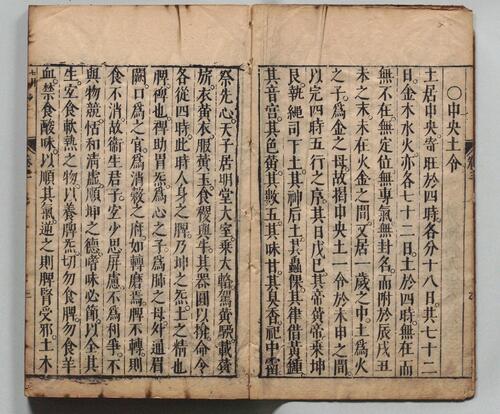 ○中央土令
土居中央寄旺於四時各分十八日共七十二
日金木水火亦各七十二日土於四時無在而
無不在無定位無專氣無封名而附於辰戌丑
未之末未在火金之間又居一歲之中土為火
之子為金之母故揭中央土一令於未申之間
以完四時五行之序其日戊巳其帝黃帝乘坤
艮執繩司下土其神后土其蟲倮其律借黃鍾
其音宮其色黃其數五其味甘其臭香祀中霤
祭先心天子居明堂大室乘大輅駕黃騵載黃
旂衣黃衣服黃玉食稷與牛其器圜以揜命令
各從四時此時人身之脾乃坤之炁土之精也
脾稗也稗助胃炁為心之子為肺之母外通眉
闕口為之宮為消穀之府如轉磨焉脾不轉則
食不消故衞生君子室少思屏慮不為利爭不
與物競恬和清虛順坤之德嗜味必節以全其
生室食軟熟之物以養脾炁切勿食脾勿食羊
血禁食酸味以順其氣逆之則脾腎受邪土木